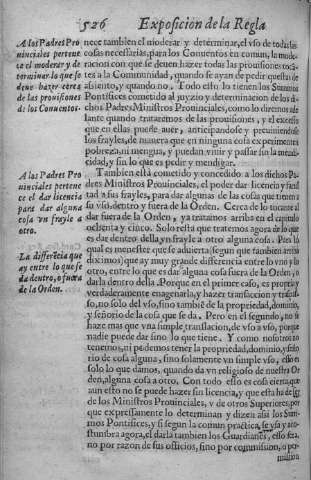 526 Exposicion de la Regla
A los Padres Pro
uinciales pertene
ce el moderar y de
terminar lo que se
deue hazer cerca
de las prouisiones
de los Conuentos.
A los Padres Pro
uinciales pertene
ce el dar licencia
para dar alguna
cosa vn frayle a
otro.
La differẽcia que
ay entre lo que se
da dentro, o fuera
de la Orden.
nece tambien el moderar y determinar, el vso de todas las
cosas necessarias, para los Conuentos en comun, la mode-
racion con que se deuen hazer todas las prouisiones tocã-
tes a la Communidad, quando se ayan de pedir
assiento, y quando no. Todo esto lo tienen los Summos
Pontifices cometido al juyzio y determinacion de los di-
chos Padres Ministros Prouinciales, como lo diremos ade
lante quando tratemos de las prouisiones, y el excesso
que en ellas puede auer, anticipandose y preuiniendose
los frayles, de manera que en ninguna cosa experimenten
pobreza, ni mengua, y puedan viuir y passar sin la mendi-
cidad, y sin lo que es pedir y mendigar.
Tambien està cometido y concedido a los dichos Pa-
dres Ministros Prouinciales, el poder dar licencia y facul
tad a sus frayles, para dar algunas de las cosas que tienen a
su vso, dentro y fuera de la Orden. Cerca de lo tocante al
dar fuera de la Orden, ya tratamos arriba en el capitulo
ochenta y cinco. Solo resta que tratemos agora de lo que
es dar dentro della vn frayle a otro alguna cosa. Pues lo
qual es menester que se aduierta (segun que tambien arriba
diximos) que ay muy grande differencia entre lo vno y lo
otro, entre lo que es dar alguna cosa fuera de la Orden, o
darla dentro della. Porque en el primer caso, es propria y
verdaderamente enagenarla, y hazer transaccion y traspas-
so, no solo del vso, sino tambiẽ de la propriedad, dominio,
y señorio de la cosa que se da. Pero en el segundo, no se
haze mas que vna simple translacion, de vso a vso, porque
nadie puede dar sino lo que tiene. Y como nosotros no
tenemos, ni podemos tener la propriedad, dominio, y seño
rio de cosa alguna, sino solamente vn simple vso, esso es
solo lo que damos, quando da vn religioso de nuestra Or
den, alguna cosa a otro. Con todo esso es cosa cierta, que
aun esto no se puede hazer sin licencia, y que esta ha de ser
de los Ministros Prouinciales, y de otros Superiores, por
que expressamente lo determinan y dizen assi los Sum-
mos Pontifices, y si segun la comun practica, se vsa y aco-
stumbra agora, el darla tambien los Guardianes, esso sera,
no por razon de sus officios, sino por commission, o per-
mission